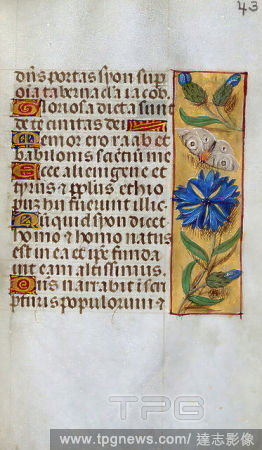 43
dn̄s portas syon sup̄ o
ia tabernacla iacob.
Gloriosa dicta sunt
de te civitas dei
Memor ero raab et
babilonis scientiū me
Ecce alienigene et
tyrus & pplus ethio
puʒ hii fuerunt illic
Nunquid syon dicet
homo & homo natus
est in ea et ip̄e funda
vit eam altissimus.
Dn̄s narrabit i scri
pturis populorum &
TPG
www.tpgnews.com/ 達志影像